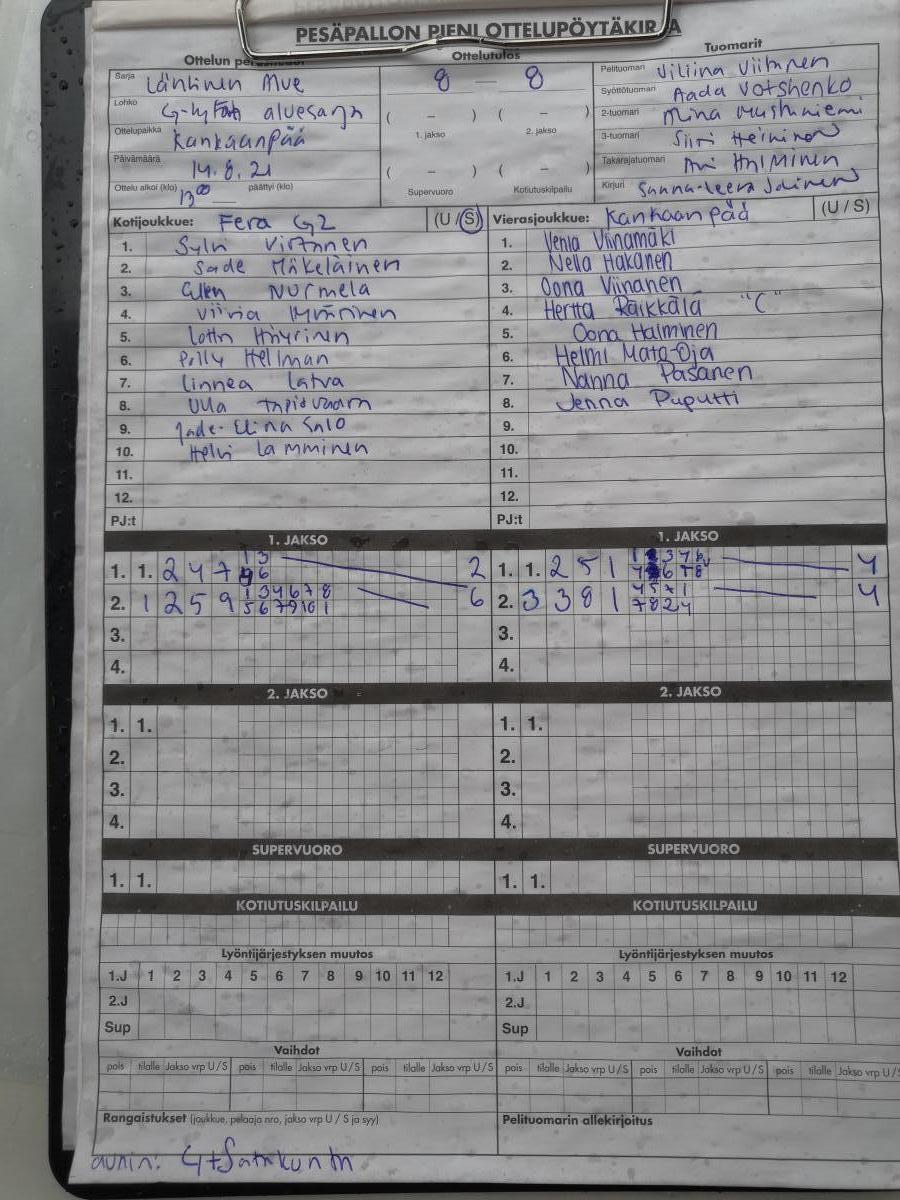 PESÄPALLON PIENI OTTELUPÖYTÄKIRJA
Ottelun
Sarja Läntinen Mue
Lohko aluesarja
Ottelupaikka Kankaanpää
Päivämäärä 14.8.21
Ottelu alkoi (klo) 13⁰⁰ päättyi (klo)
Ottelutulos
8 – 8
( – ) ( – )
1. jakso 2. jakso
( – ) ( – )
Supervuoro Kotiutuskilpailu
Tuomarit
Pelituomari Viliina
Syöttötuomari Aada Votshenko
2-tuomari Mina Mushiniemi
3-tuomari Siiri Heininen
Takarajatuomari
Kirjuri Sanna-Leera
Kotijoukkue: Fera G2 (U / S)
1. Sylvi Virtanen
2. Sade Mäkeläinen
3. Nurmela
4. Viivia
5. Lotta
6. Hellman
7. Linnea Latva
8. Ulla
9. Jade-Elina Salo
10. Helvi Lamminen
11.
12.
PJ:t
Vierasjoukkue: Kankaanpää (U / S)
1. Venla Viinamäki
2. Nella Hakanen
3. Oona Viinanen
4. Hertta Raikkala "C"
5. Oona Halminen
6. Helmi Mata-Oja
7. Nanna Pasanen
8. Jenna Puputti
9.
10.
11.
12.
PJ:t
1. JAKSO
1. 1. 2 4 7 2
2. 1 2 5 9 1 3 4 6 7 8 6
5 6 7 9 10 1
3.
4.
1. JAKSO
1. 1. 2 5 1 4
2. 3 3 8 1 4 5 7 1 4
7 8 2 4
3.
4.
2. JAKSO
1. 1.
2.
3.
4.
2. JAKSO
1. 1.
2.
3.
4.
SUPERVUORO
1. 1.
SUPERVUORO
1. 1.
KOTIUTUSKILPAILU
KOTIUTUSKILPAILU
Lyöntijärjestyksen muutos
1.J 1 2 3 4 5 6 7 8 9 10 11 12
2.J
Sup
Lyöntijärjestyksen muutos
1.J 1 2 3 4 5 6 7 8 9 10 11 12
2.J
Sup
Vaihdot
pois tilalle Jakso vrp U/S pois tilalle Jakso vrp U/S pois tilalle Jakso vrp U/S
Vaihdot
pois tilalle Jakso vrp U/S pois tilalle Jakso vrp U/S pois tilalle Jakso vrp U/S
Rangaistukset (joukkue, pelaaja nro, jakso vrp U / S ja syy)
Pelituomarin allekirjoitus